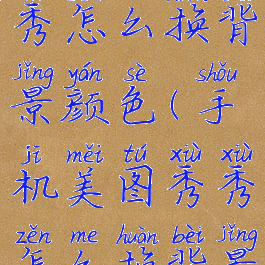 秀怎么换背
jǐng yán sè shǒu
景颜色(手
jī měi tú xiù xiù
机美图秀秀
zěn me huàn bèi jǐng
怎么换背景